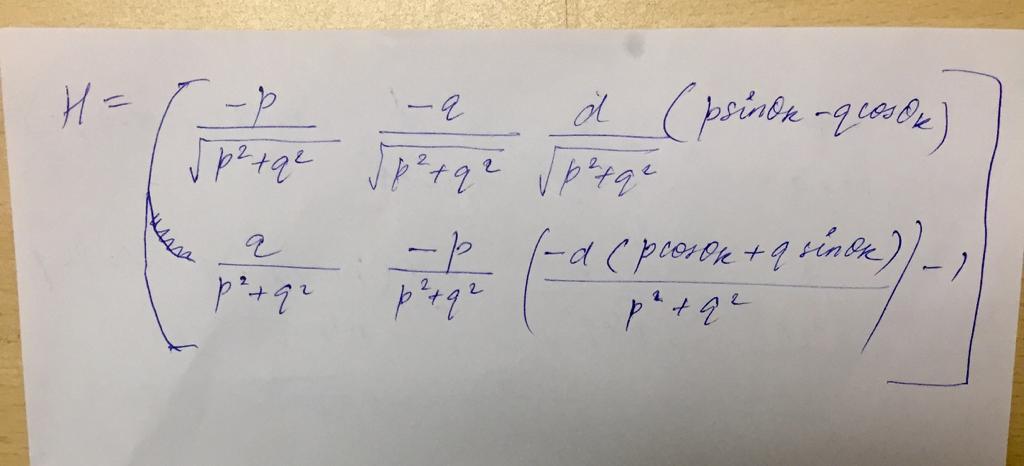 H = [ -p/√(p²+q²)   -q/√(p²+q²)   d/√(p²+q²) (p sinθₖ - q cosθₖ)
q/(p²+q²)   -p/(p²+q²)   (-d (p cosθₖ + q sinθₖ)/(p²+q²)) - 1 ]